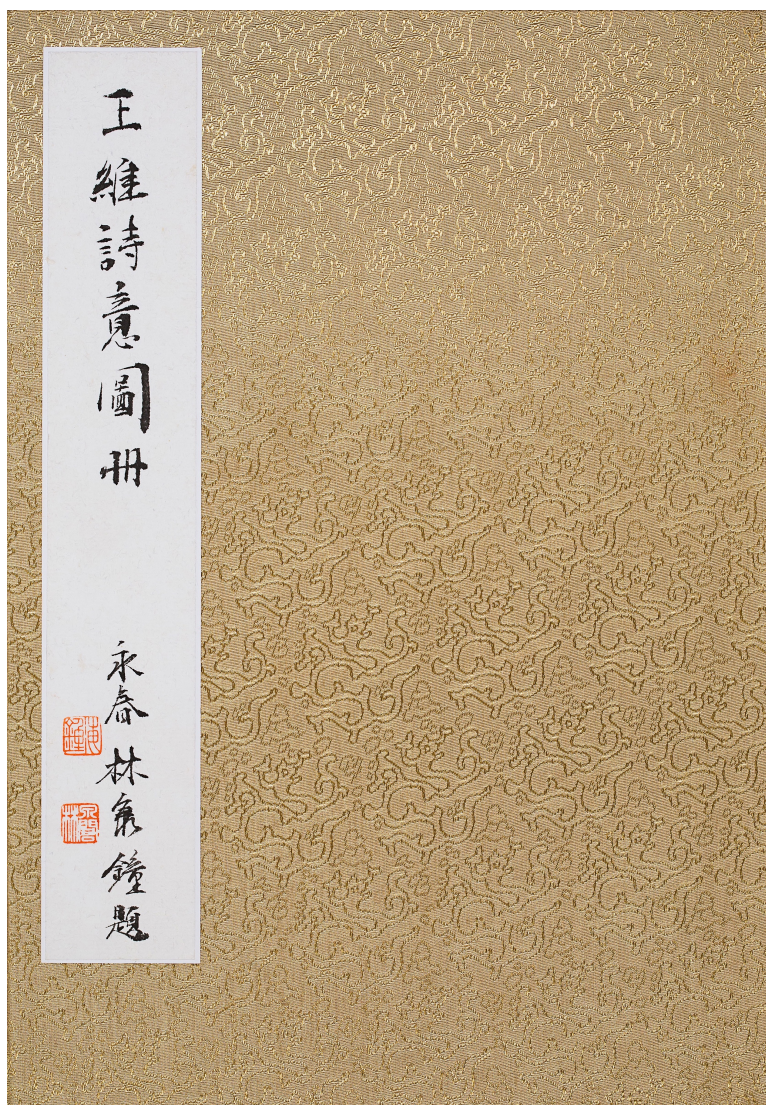 王維詩意圖册
永春林家鐘題